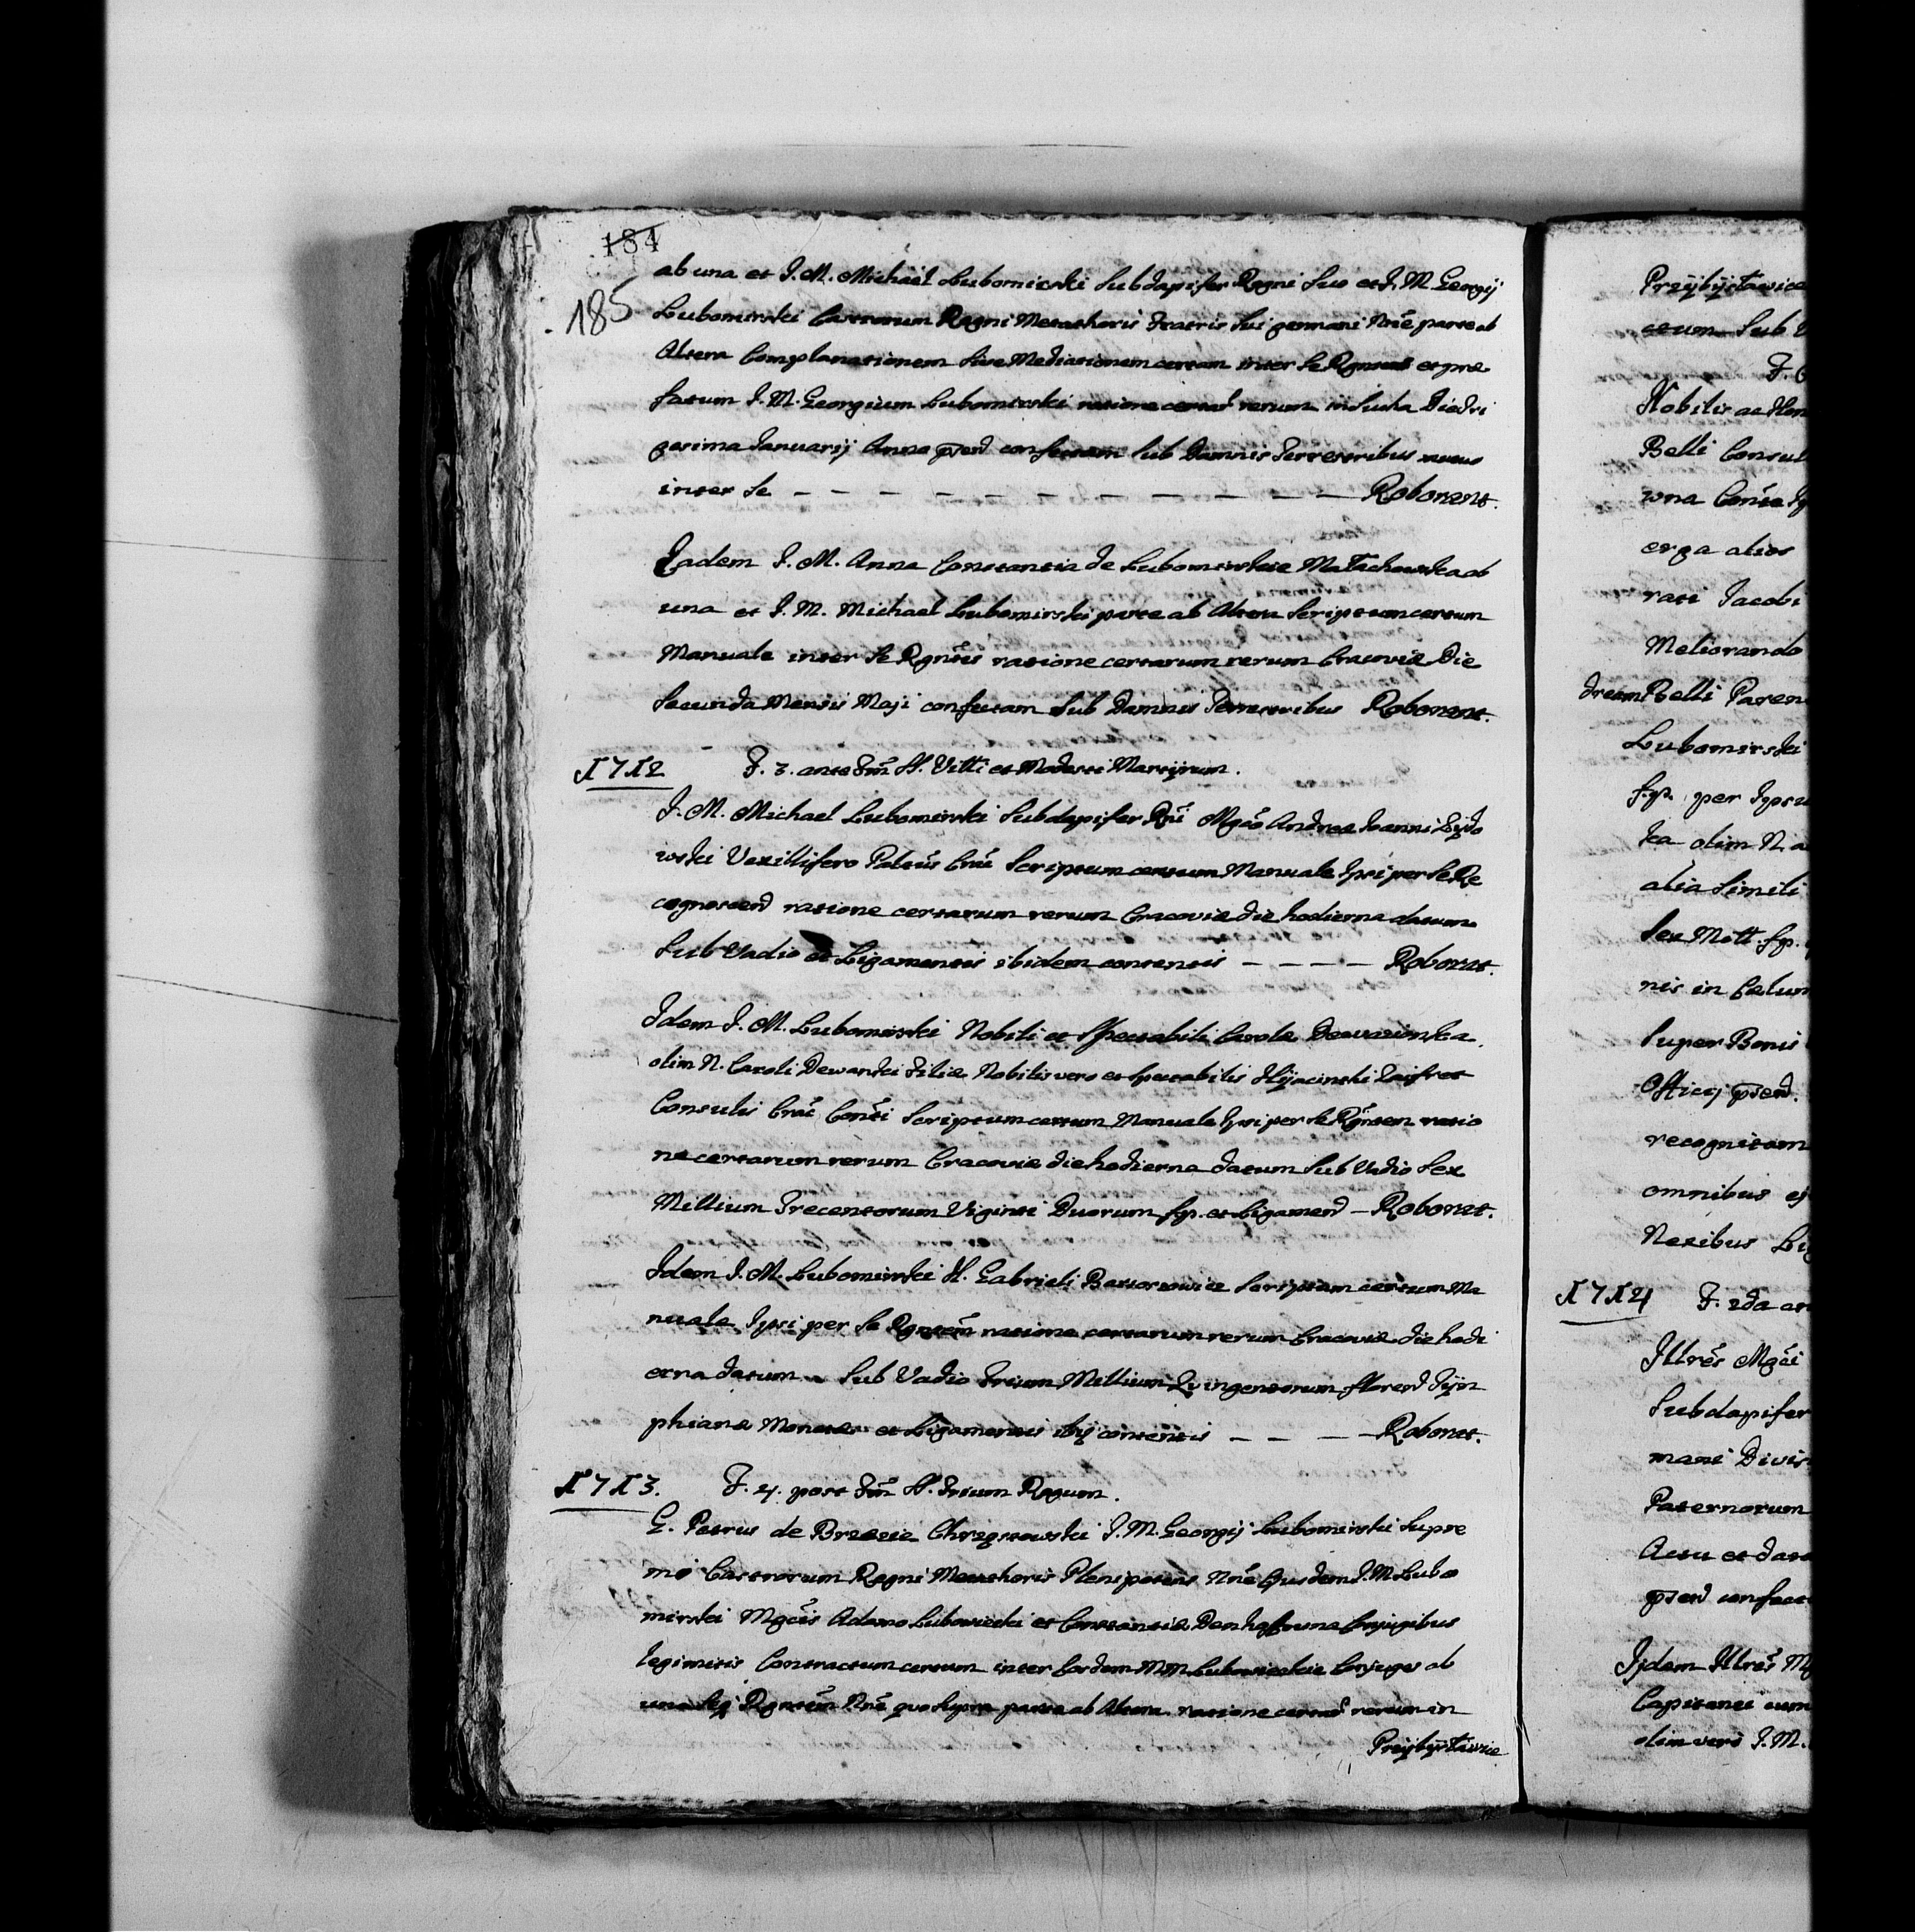 184
185
ab una et I. M. Michael Lubomirski Subdapifer Regni Suo et I. M. Georgij
Lubomirski Castrorum Regni Metathoris Fratris Sui germani Nñe parte ab
Altera Complanationem Sive Mediationem certam inter Se et præ
fatum I. M. Georgium Lubomirski ratione certar rerum in Sucha Die
gesima Januarij Anno confectam Sub Damnis Terrestribus
inter Se – – – – – – – – – – – Roborant.
Eadem I. M. Anna Constantia de Lubomirskie Małachowska ab
una et I. M. Michael Lubomirski parte ab Altera Scriptum certum
Manuale inter Se Rgñtes ratione certarum rerum Cracoviæ Die
Secunda Mensis Maji confectam Sub Damnis Terrestribus Roborant.
1712 F. 3. ante Fm̃ S. Vitti et Modesti Martyrum.
I. M. Michael Lubomirski Subdapifer Rñi Mgco Andreæ Joanni Żydo
wski Vexillifero Crac̃ Scriptum certum Manuale Ipsi per Se Re
cognoscend ratione certarum rerum Cracoviæ die hodierna datum
Sub Vadio et Ligamentis ibidem contentis – – – – Roborat.
Idem I. M. Lubomirski Nobili et Spectabili Carolæ
olim N. Caroli Dewarski Filiæ Nobilis vero et Spectabilis Hyacinthi
Consulis Crac̃ Cons̃ti Scriptum certum Manuale Ipsi per Se Rgñtem ratio
ne certarum rerum Cracoviæ die hodierna datum Sub Vadio Sex
Millium Trecentorum Viginti Duorum fp. et Ligamend – Roborat.
Idem I. M. Lubomirski S. Gabrieli Scriptum certum Ma
nuale Ipsi per Se Rgntem̃ ratione certarum rerum Cracoviæ die hodi
erna datum Sub Vadio Trium Millium Qvingentorum florend Tÿm
phianæ Monetæ et Ligamentis ibj contentis – – – Roborat.
1713. F. 4. post Fm̃ S. Trium Regum.
G. Petrus de Brzezie Chrząstowski I. M. Georgij Lubomirski Supre
mi Castrorum Regni Metathoris Plenipotens Nñe Ejusdem I. M. Lubo
mirski Mgcis Adamo Lubowiecki et Constantiæ Denhoffowna Conjugibus
legitimis Contractum certum inter Eosdem MM Lubowieckie Conjuges ab
una Seq Rgntem̃ Nñe quo supra parte ab Altera ratione certar rerum in
Przybysławice
Przybysławice
ceum Sub
F.
Nobilis ac
Belli Consul
wna
erga alios
rati Jacobi
Meliorando
Belli Paren
Lubomirski
fp. per Ipsu
ka olim N. a
alia Simili
Sex Mill. fp.
nis in
Super Bonis
Officij
recognitam
omnibus ej
Nexibus Li
1714 F. 2da an
Illres̃ Mgci
Subdapifer
mani Divis
Paternorum
Actu et data
confect
Ijdem Illres̃ M
Capitanei cum
olim vero I. M.